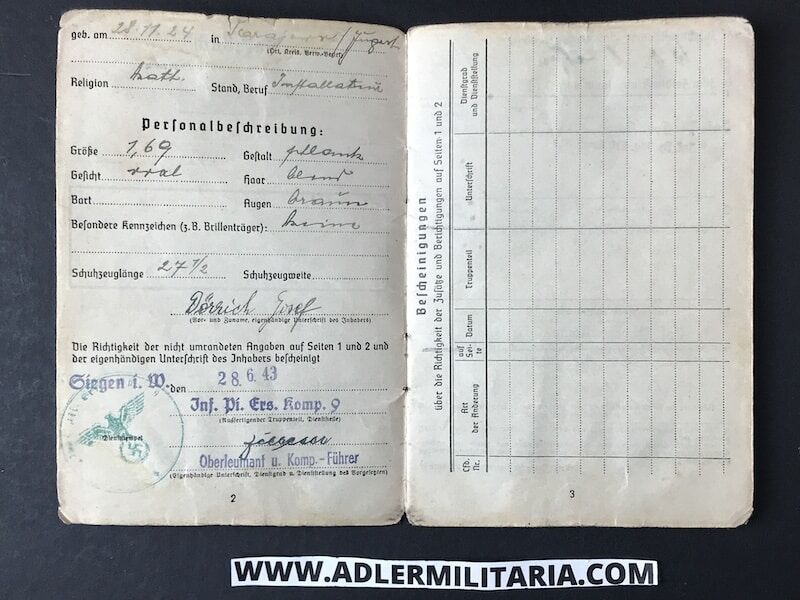 geb. am 28.11.24 in
(Ort, Kreis, Verw.-Bezirk)
Religion kath. Stand, Beruf
Personalbeschreibung:
Größe 1,69 Gestalt schlank
Gesicht oval Haar blond
Bart Augen braun
Besondere Kennzeichen (z.B. Brillenträger): keine
Schuhzeuglänge 27 1/2 Schuhzeugweite
Josef
(Vor- und Zuname, eigenhändige Unterschrift des Inhabers)
Die Richtigkeit der nicht umrandeten Angaben auf Seiten 1 und 2 und
der eigenhändigen Unterschrift des Inhabers bescheinigt
Siegen i. W. den 28.6.43
Inf. Pi. Ers. Komp. 9
(Ausfertigender Truppenteil, Dienststelle)
Dienststempel
Oberleutnant u. Komp.-Führer
(Eigenhändige Unterschrift, Dienstgrad u. Dienststellung des Vorgesetzten)
2
Bescheinigungen
über die Richtigkeit der Zusätze und Berichtigungen auf Seiten 1 und 2
Lfd. Nr.
Art der Änderung
auf Sei-te
Datum
Truppenteil
Unterschrift
Dienstgrad und Dienststellung
3
WWW.ADLERMILITARIA.COM